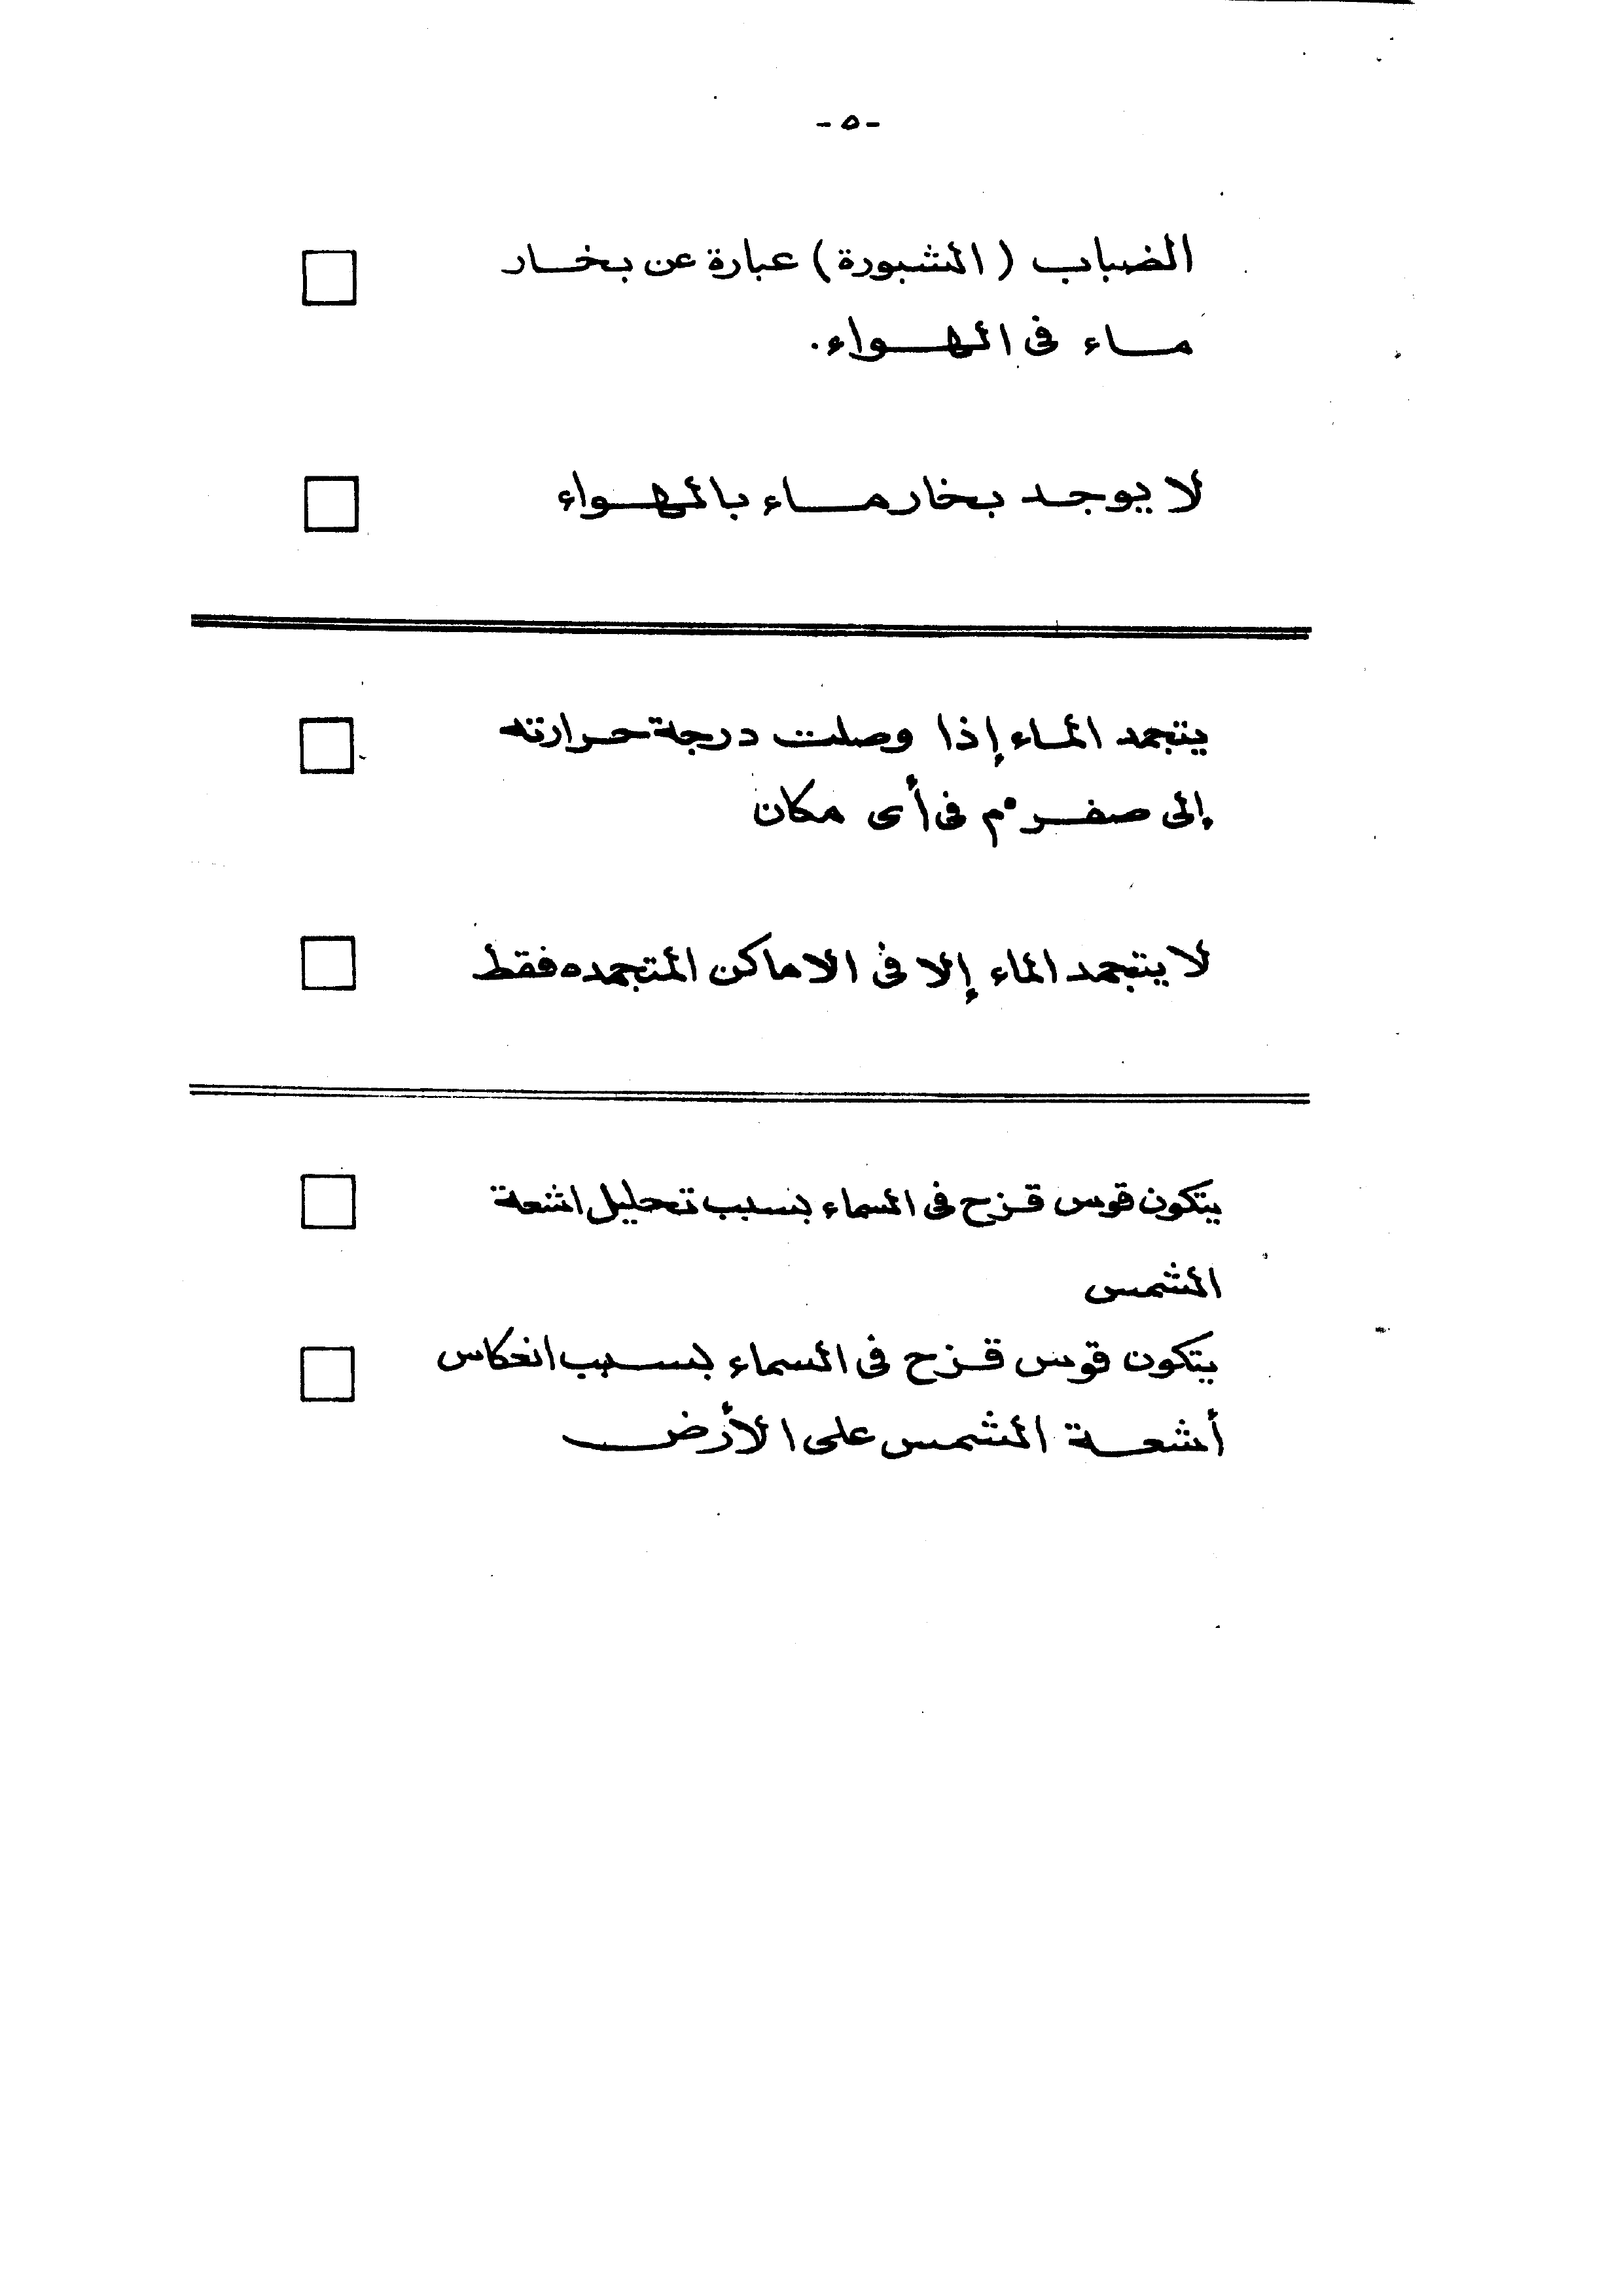 - ٥ -
الضباب (الشبورة) عبارة عن بخار
ماء فى الهواء.
لا يوجد بخار ماء بالهواء
يتجمد الماء إذا وصلت درجة حرارته
إلى صفر °م فى أى مكان
لا يتجمد الماء إلا فى الاماكن المتجمده فقط
يتكون قوس قزح فى السماء بسبب تحليل اشعة
الشمس
يتكون قوس قزح فى السماء بسبب انعكاس
أشعة الشمس على الأرض